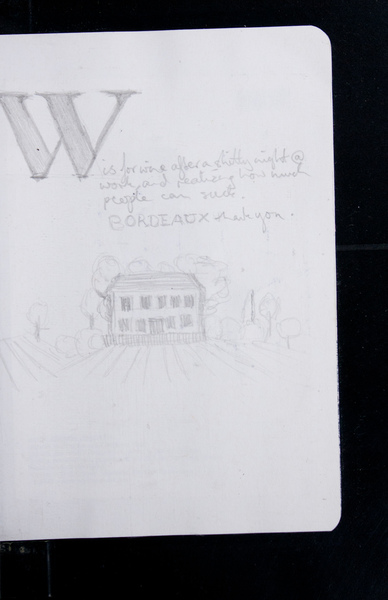 W
is for wine after a shitty night @
work and realizing how much
people can suck.
BORDEAUX thank you.